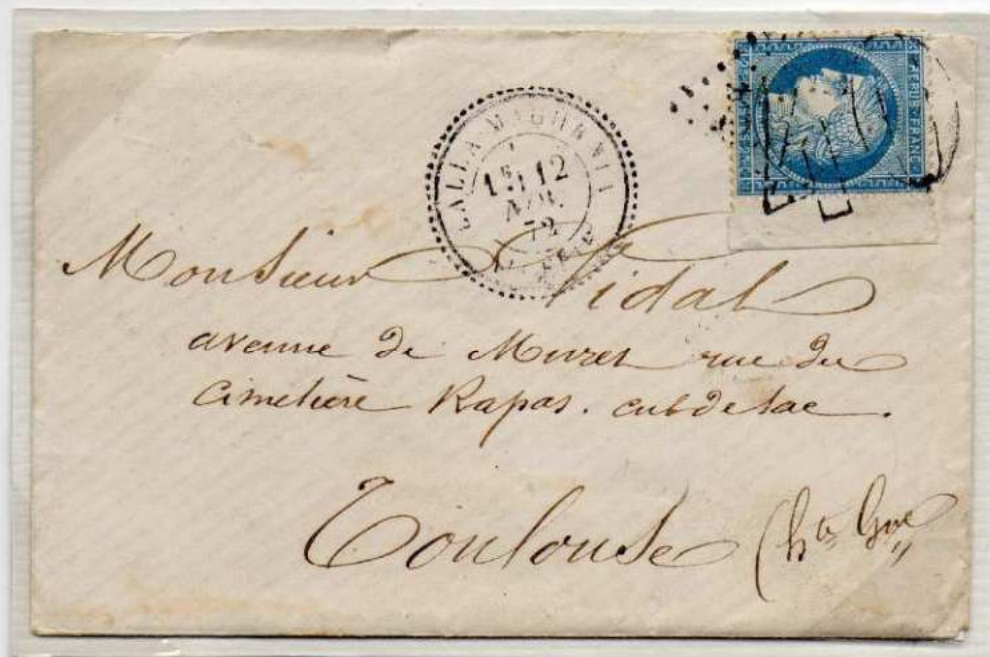 REPUB·FRANC·
LALLA-MAGHRNIA
1E 12
AVR.
72
ALGERIE
Monsieur Vidal
avenue de Muret rue du
cimetière Rapas. cul de sac.
Toulouse (hte Gne)